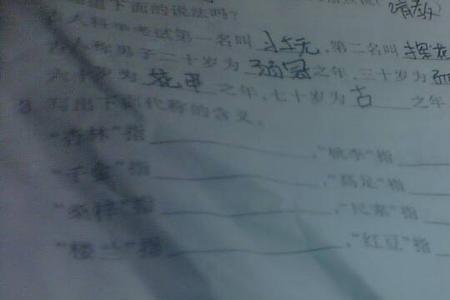 知道下面的说法吗？
古人科举考试第一名叫 状元，第二名叫 榜
古人称男子二十岁为 弱冠 之年，三十岁为
六十岁为 花甲 之年，七十岁为 古 之年
写出下列代称的含义。
“杏林”指 ，“桃李”指
“千金”指 ，“高足”指
“桑梓”指 ，“尺素”指
“楼兰”指 ，“红豆”指